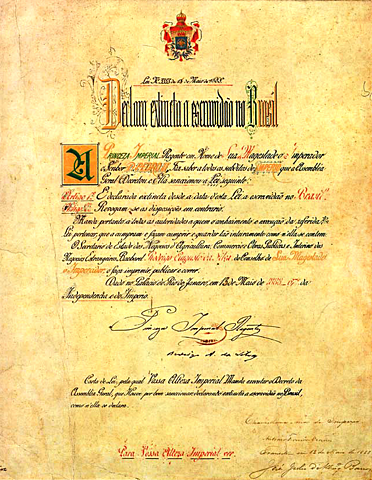 Lei Nº 3353 de 13 de Maio de 1888.
Declara extincta a escravidão no Brasil
A PRINCEZA IMPERIAL Regente em Nome de Sua Magestade o Imperador
o Senhor D. PEDRO II, Faz saber a todos os subditos do IMPERIO que a Assembléa
Geral Decretou e Ella sanccionou a Lei seguinte:
Artigo 1º: É declarada extincta desde a data d'esta Lei a escravidão no Brazil.
Artigo 2º: Revogam-se as disposições em contrario.
Manda portanto a todas as autoridades a quem o conhecimento e execução da referida
Lei pertencer, que a cumpram e façam cumprir e guardar tão inteiramente como n'ella se contem.
O Secretario de Estado dos Negocios d'Agricultura, Commercio e Obras Publicas e Interino dos
Negocios Estrangeiros, Bacharel Rodrigo Augusto da Silva, do Conselho de Sua Magestade
o Imperador, o faça imprimir, publicar e correr.
Dado no Palacio do Rio de Janeiro, em 13 de Maio de 1888 - 67º da
Independencia e do Imperio.
Princeza Imperial Regente
Rodrigo A. da Silva
Carta de Lei, pela qual Vossa Alteza Imperial Manda executar o Decreto da
Assembléa Geral, que Houve por bem sanccionar, declarando extincta a escravidão no Brazil,
como n'ella se declara.
Para Vossa Alteza Imperial ver.